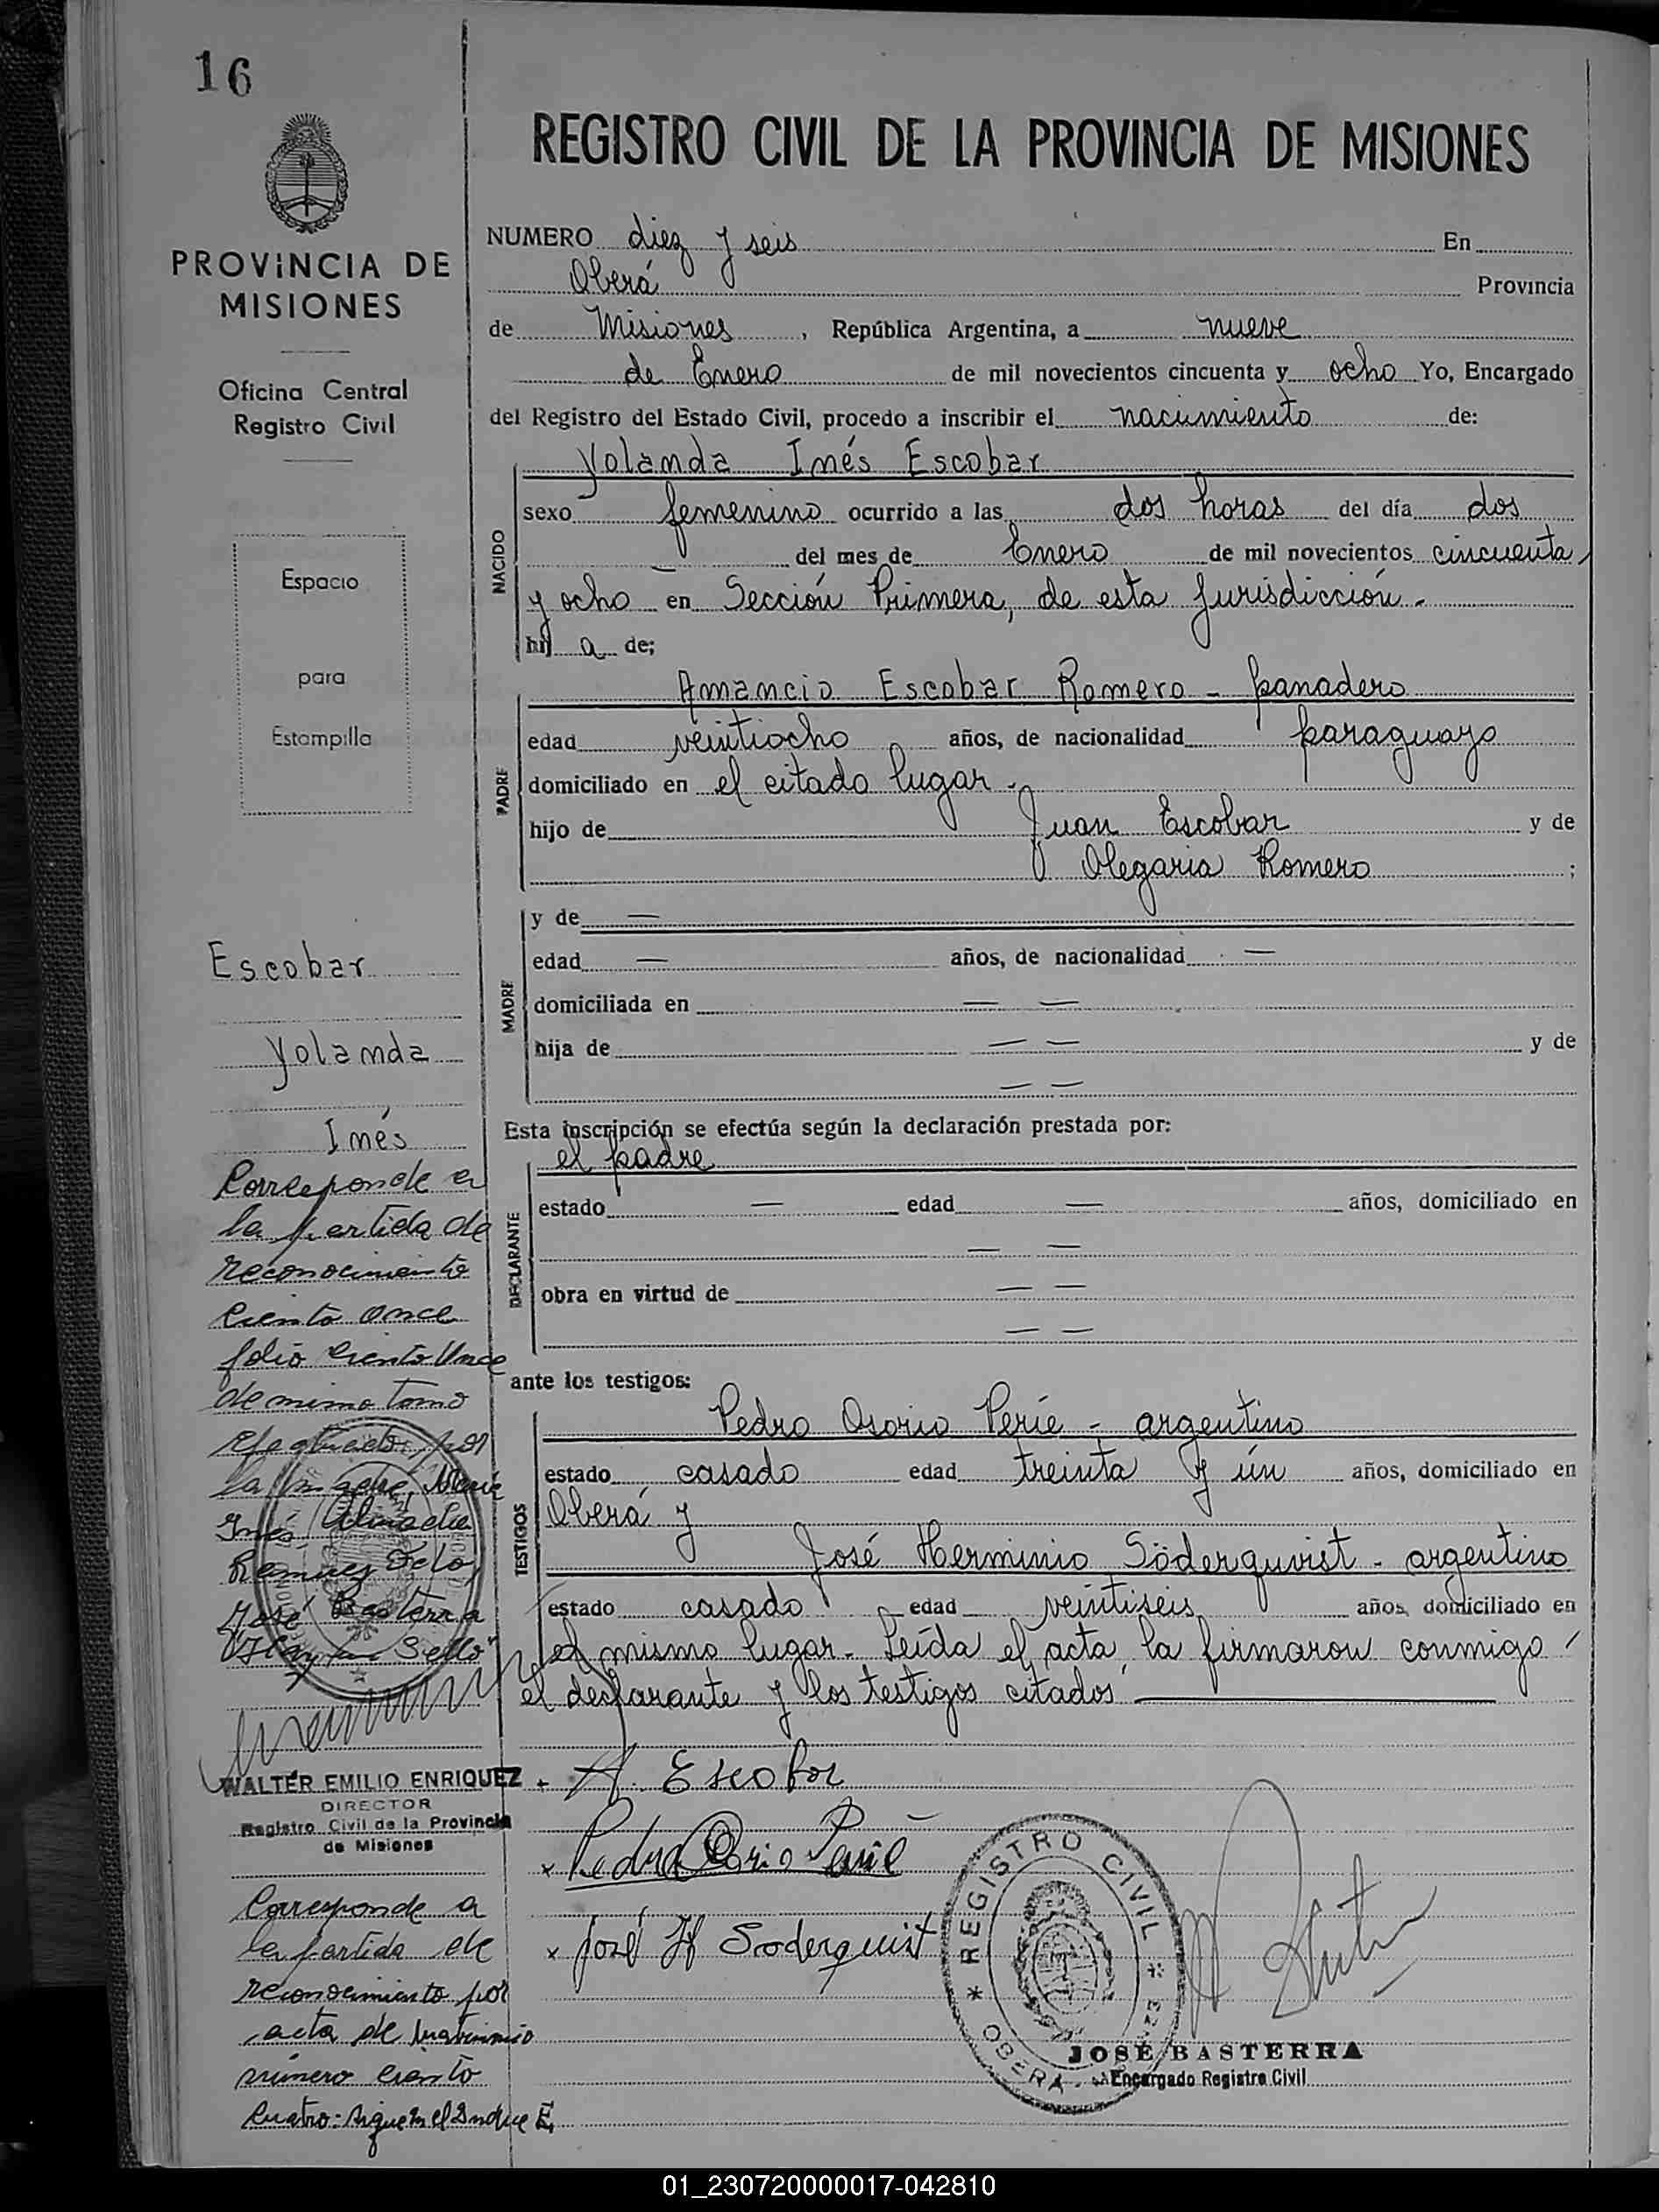 16
PROVINCIA DE
MISIONES
Oficina Central
Registro Civil
Espacio
para
Estampilla
Escobar
Yolanda
Inés
Corresponde a
la partida de
reconocimiento
Ciento once
folio Ciento Once
de mismo tomo
efectuado por
la madre, María
Inés
José Basterra
Sello"
WALTER EMILIO ENRIQUEZ
DIRECTOR
Registro Civil de la Provincia
de Misiones
Corresponde a
la partida de
reconocimiento por
acta de matrimonio
número ciento
Cuatro: Sigue en el Indice E
REGISTRO CIVIL DE LA PROVINCIA DE MISIONES
NUMERO diez y seis En
Oberá Provincia
de Misiones, República Argentina, a nueve
de Enero de mil novecientos cincuenta y ocho Yo, Encargado
del Registro del Estado Civil, procedo a inscribir el nacimiento de:
Yolanda Inés Escobar
NACIDO
sexo femenino ocurrido a las dos horas del día dos
del mes de Enero de mil novecientos cincuenta
y ocho en Sección Primera, de esta Jurisdicción.-
hij a de;
Amancio Escobar Romero - panadero
PADRE
edad veintiocho años, de nacionalidad paraguayo
domiciliado en el citado lugar.-
hijo de Juan Escobar y de
Olegaria Romero ;
MADRE
y de —
edad — años, de nacionalidad —
domiciliada en — —
hija de — — y de
— —
Esta inscripción se efectúa según la declaración prestada por:
el padre
DECLARANTE
estado — edad — años, domiciliado en
— —
obra en virtud de — —
— —
ante los testigos:
Pedro Osorio Perié - argentino
TESTIGOS
estado casado edad treinta y ún años, domiciliado en
Oberá y
José Herminio Söderquvist - argentino
estado casado edad veintiseis años, domiciliado en
el mismo lugar.- Leída el acta, la firmaron conmigo
el declarante y los testigos citados
A. Escobar
x Pedro Osorio Perié
x José H Soderquist
* REGISTRO CIVIL *
OBERA
JOSÉ BASTERRA
Encargado Registro Civil
01_230720000017-042810